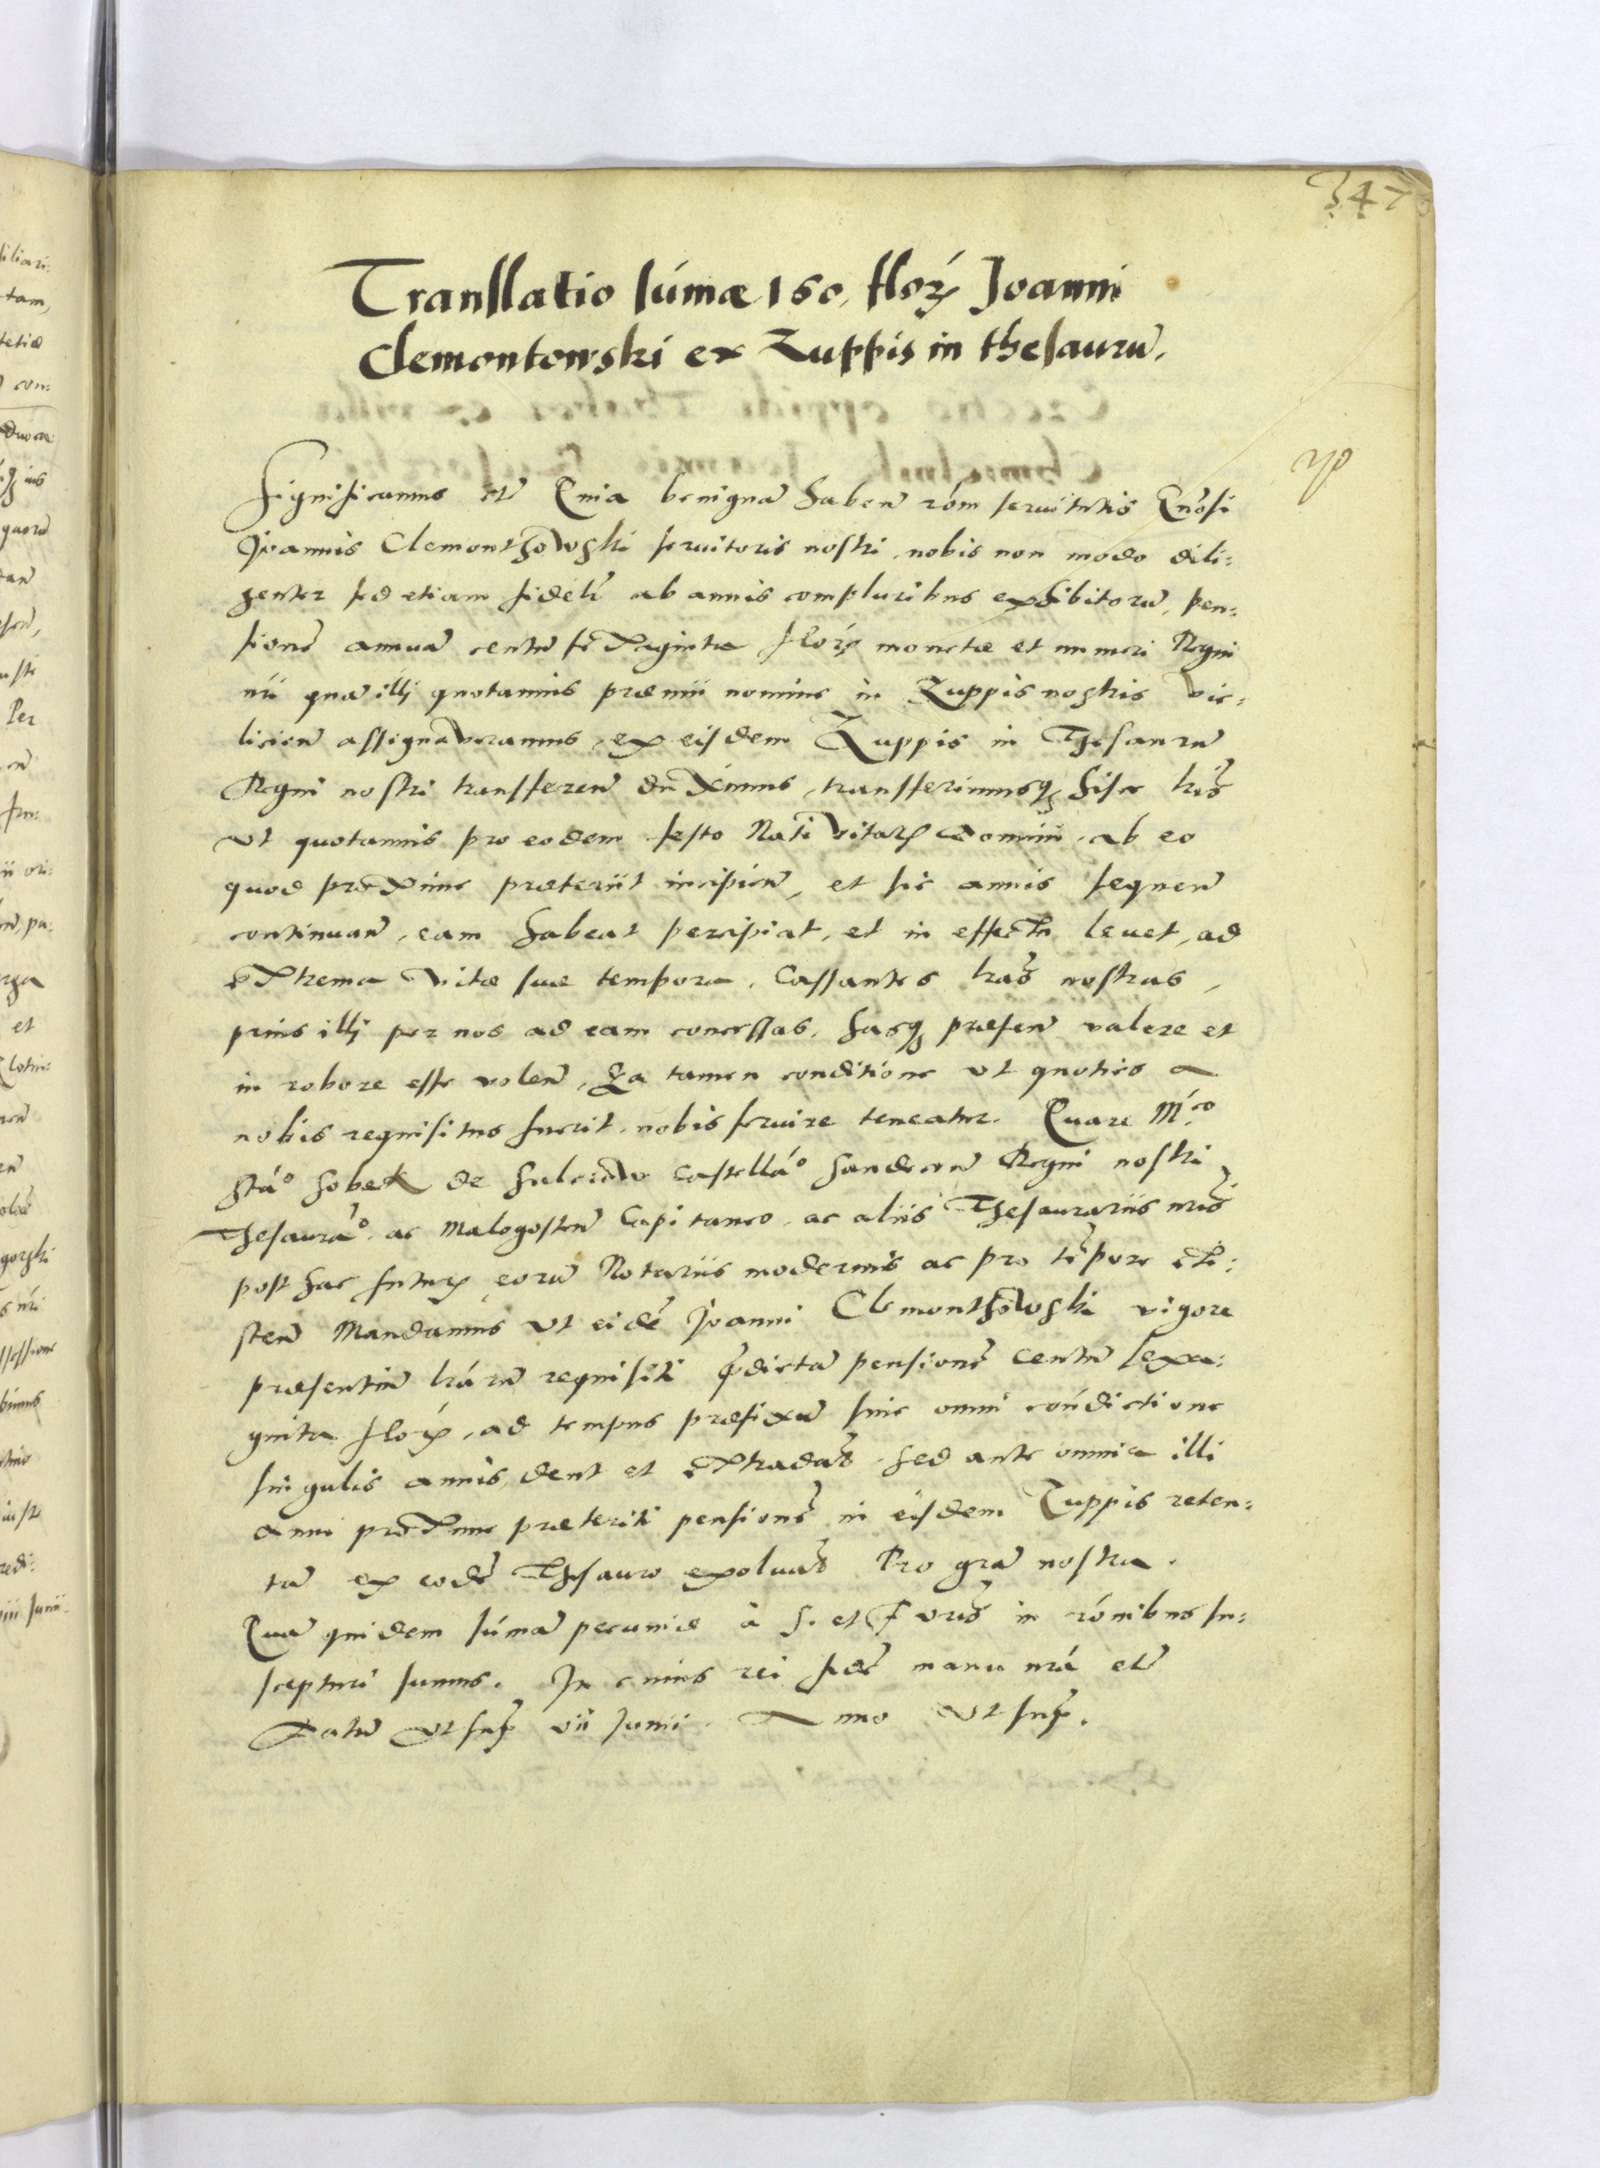 347
Translatio súmæ 160, florꝝ Joanni
Clemontowski ex Zuppis in thesaurũ.
Significamus etc̃ Quia benignã habeñ róm servitutis Gñosi
Joannis Clemonthowski servitoris nostri, nobis non modo dili:
genter sed etiam fidelr̃ ab annis compluribus exhibitorũ, pen:
sionẽ annuã centũ sexaginta florꝝ monetæ et numeri Regni
nři quã illi quotannis præmii nomine in Zuppis nostris vie:
licieñ assignaveramus, ex eisdem Zuppis in Thesaurũ
Regni nostri transferreñ duximus, transferimusqꝫ hisce lrĩs
ut quotannis pro eodem festo Nativitatꝭ Domini, ab eo
quod proxime præteriit incipieñ, et sic annis sequeñ
continuañ, eam habeat percipiat, et in effectu levet, ad
extrema vitæ suæ tempora, Cassantes lrãs nostras,
prius illi per nos ad eam concessas, hasqꝫ præseñ valere et
in robore esse voleñ, Ea tamen conditione ut quoties a
nobis requisitus fuerit, nobis servire teneatur. Quare M̃co
Stáo Sobek de Sulejow Castelláo Sandecieñ Regni nostri
Thesauráo, ac Malogosteñ Capitaneo, ac aliis Thesaurariis nrĩs
post hac futurꝭ, eorũ Notariis modernis ac pro tẽpore exi:
steñ Mandamus ut eidẽ Joanni Clemonthowski vigore
præsentiũ lrárũ requisiti p̃dictã pensionẽ centũ sexa:
ginta florꝝ, ad tempus præfixũ sine omni cóndictione
singulis annis, dent et extradãt. Sed ante omnia illi
anni proxime præteriti pensionẽ in eisdem Zuppis reten:
tã ex eodẽ Thesauro exolvãt Pro grã nostra.
Quã quidem súmã pecuniæ à S. et F. vris̃ in rónibus su:
scepturi sumus. In cuius rei fidẽ manu nrá etc̃
Datũ ut supꝭ vii Junii. Anno ut supꝭ.